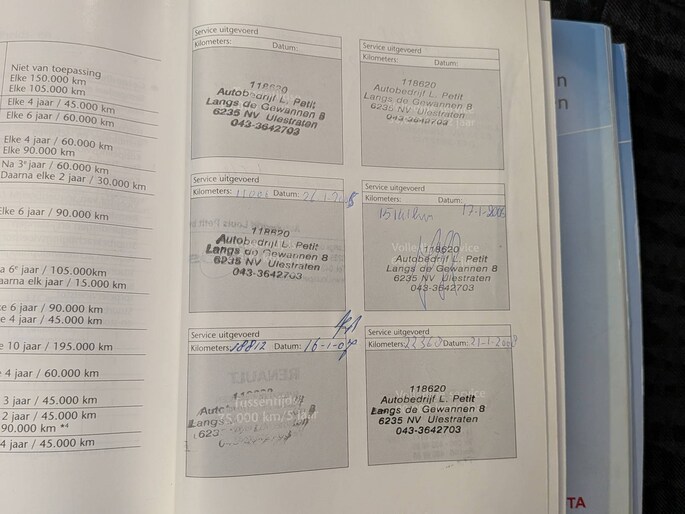 Niet van toepassing
Elke 150.000 km
Elke 105.000 km
Elke 4 jaar / 45.000 km
Elke 6 jaar / 60.000 km
Elke 4 jaar / 60.000 km
Elke 90.000 km
Na 3e jaar / 60.000 km
Daarna elke 2 jaar / 30.000 km
lke 6 jaar / 90.000 km
a 6e jaar / 105.000km
aarna elk jaar / 15.000 km
e 6 jaar / 90.000 km
e 4 jaar / 45.000 km
e 10 jaar / 195.000 km
4 jaar / 60.000 km
3 jaar / 45.000 km
2 jaar / 45.000 km
90.000 km
4 jaar / 45.000 km
Service uitgevoerd
Kilometers: Datum:
118620
Autobedrijf L. Petit
Langs de Gewannen 8
6235 NV Ulestraten
043-3642703
Service uitgevoerd
Kilometers: Datum:
118620
Autobedrijf L. Petit
Langs de Gewannen 8
6235 NV Ulestraten
043-3642703
Service uitgevoerd
Kilometers: Datum:
118620
Autobedrijf L. Petit
Langs de Gewannen 8
6235 NV Ulestraten
043-3642703
17-1-2006
118620
Autobedrijf L. Petit
Langs de Gewannen 8
6235 NV Ulestraten
043-3642703
Service uitgevoerd
Kilometers: 18812 Datum: 16-1-07
Tussentijds
75.000 km/5 jaar
Service uitgevoerd
Kilometers: 22360 Datum: 21-1-2008
118620
Autobedrijf L. Petit
Langs de Gewannen 8
6235 NV Ulestraten
043-3642703
n
en
TA